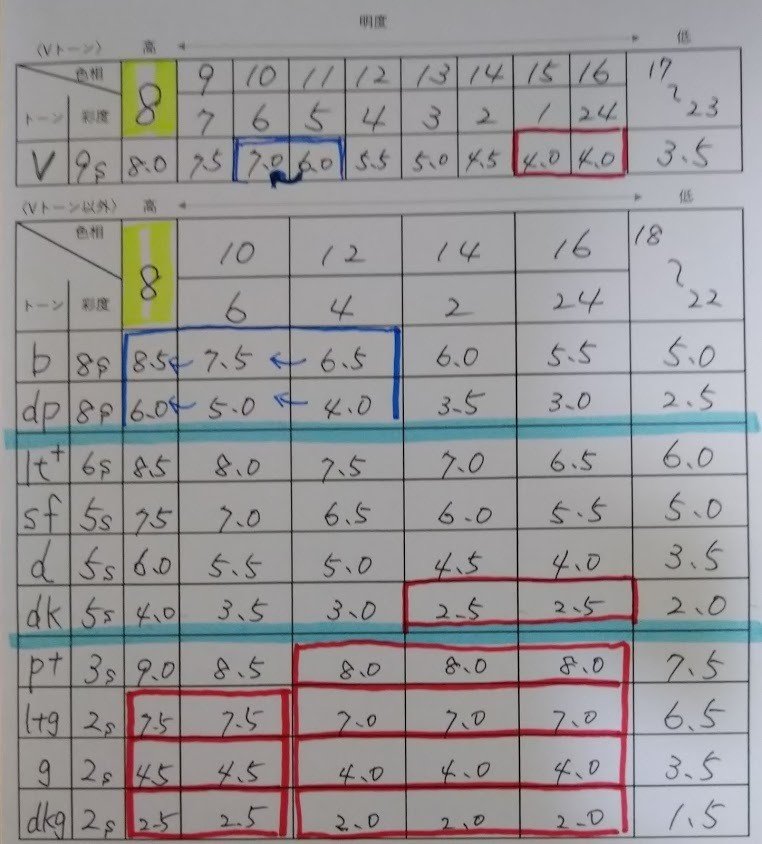 明度
〈Vトーン〉 高 低
色相 8 9 10 11 12 13 14 15 16 17 〜 23
トーン 彩度 7 6 5 4 3 2 1 24
V 9s 8.0 7.5 7.0 6.0 5.5 5.0 4.5 4.0 4.0 3.5
〈Vトーン以外〉 高 低
色相 8 10 12 14 16 18 〜 22
トーン 彩度 6 4 2 24
b 8s 8.5 7.5 6.5 6.0 5.5 5.0
dp 8s 6.0 5.0 4.0 3.5 3.0 2.5
lt+ 6s 8.5 8.0 7.5 7.0 6.5 6.0
sf 5s 7.5 7.0 6.5 6.0 5.5 5.0
d 5s 6.0 5.5 5.0 4.5 4.0 3.5
dk 5s 4.0 3.5 3.0 2.5 2.5 2.0
p+ 3s 9.0 8.5 8.0 8.0 8.0 7.5
ltg 2s 7.5 7.5 7.0 7.0 7.0 6.5
g 2s 4.5 4.5 4.0 4.0 4.0 3.5
dkg 2s 2.5 2.5 2.0 2.0 2.0 1.5